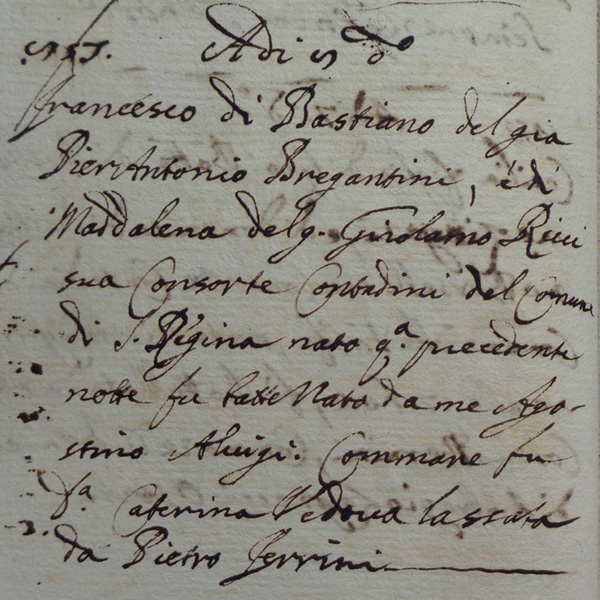 Adi 5 dº
Francesco di Bastiano del gia
PierAntonio Bregantini, é di
Maddalena del g. Girolamo Ricci
sua Consorte Contadini del Comune
di S. Regina nato qª precedente
notte fu battezzato da me Ago-
stino Aluigi. Commare fu
dª Caterina Vedova lassata
da Pietro Ferrini